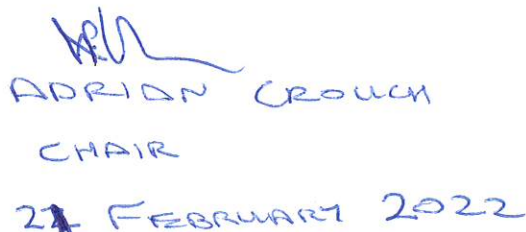 ADRIAN CROUCH
CHAIR
FEBRUARY 2022